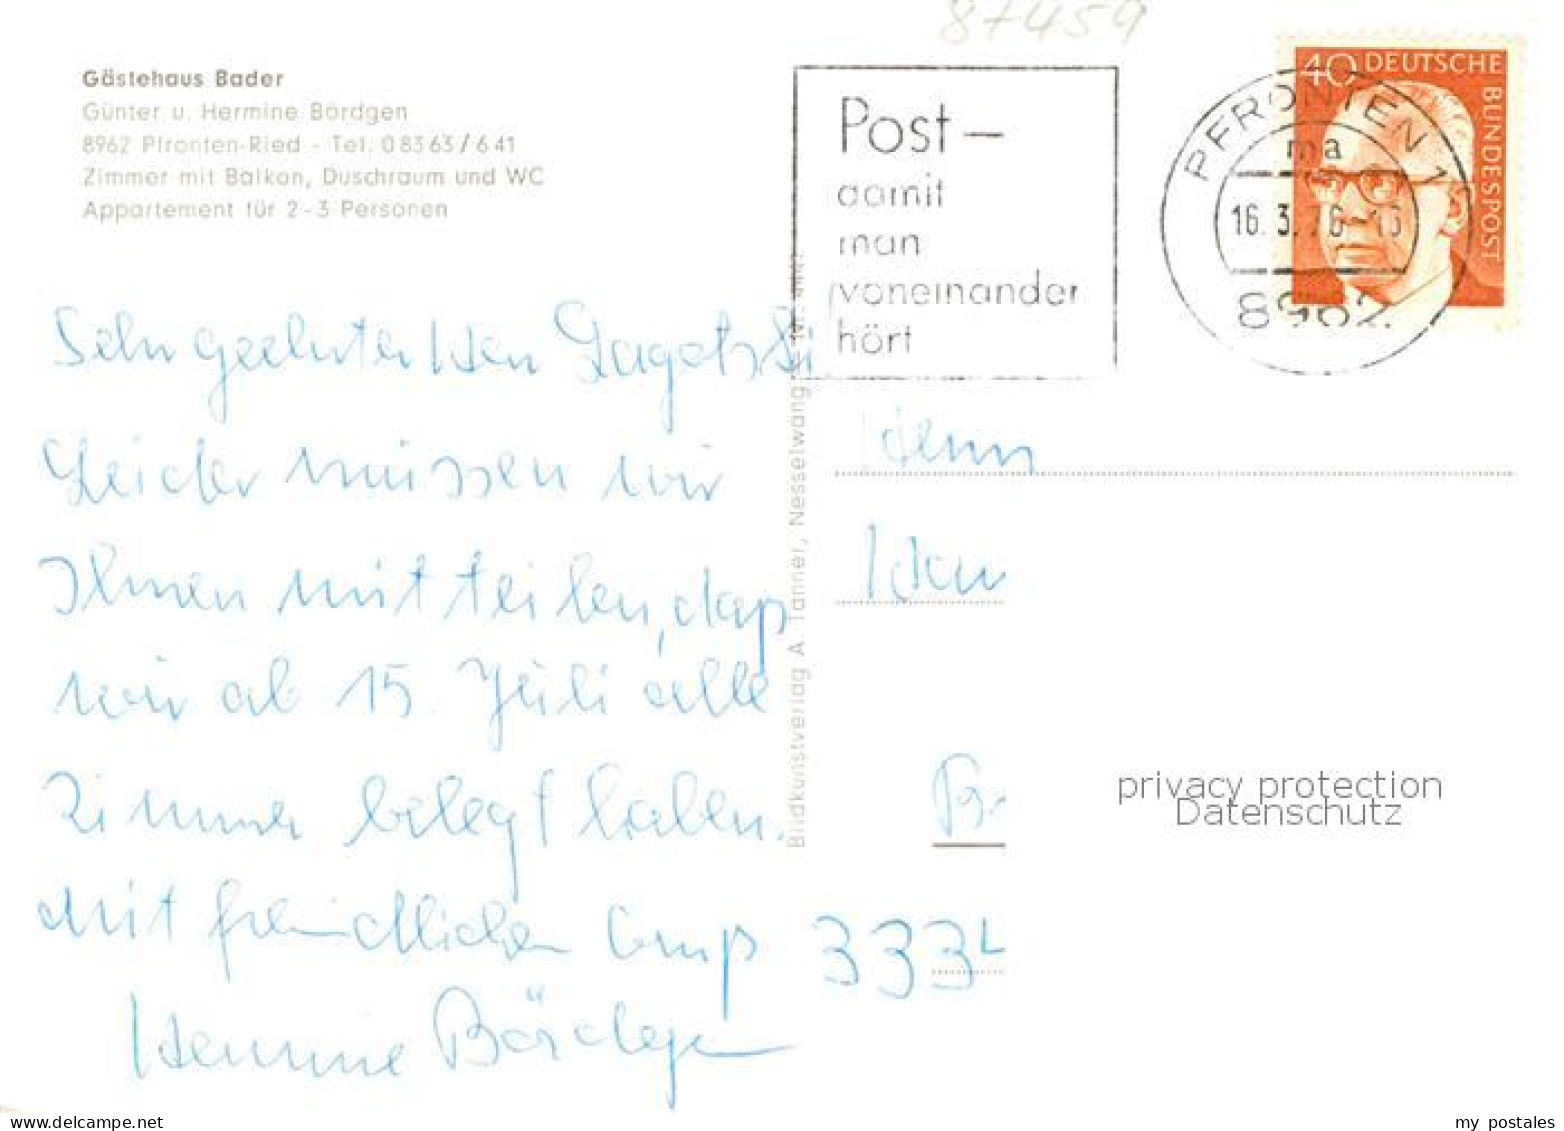 87459
Gästehaus Bader
Günter u. Hermine Bördgen
8962 Pfronten-Ried - Tel. 08363/641
Zimmer mit Balkon, Duschraum und WC
Appartement für 2-3 Personen
Post –
damit
man
voneinander
hört
PFRONTEN 1
ma
16.3.76-16
8962
40 DEUTSCHE
BUNDESPOST
Sehr geehrter Herr
Leider müssen wir
Ihnen mitteilen, daß
wir ab 15. Juli alle
Zimmer belegt haben.
Mit freundlichen Gruß
Hermine Bördgen
Bildkunstverlag A. Tanner, Nesselwang
Herrn
333
privacy protection
Datenschutz
www.delcampe.net
my_postales